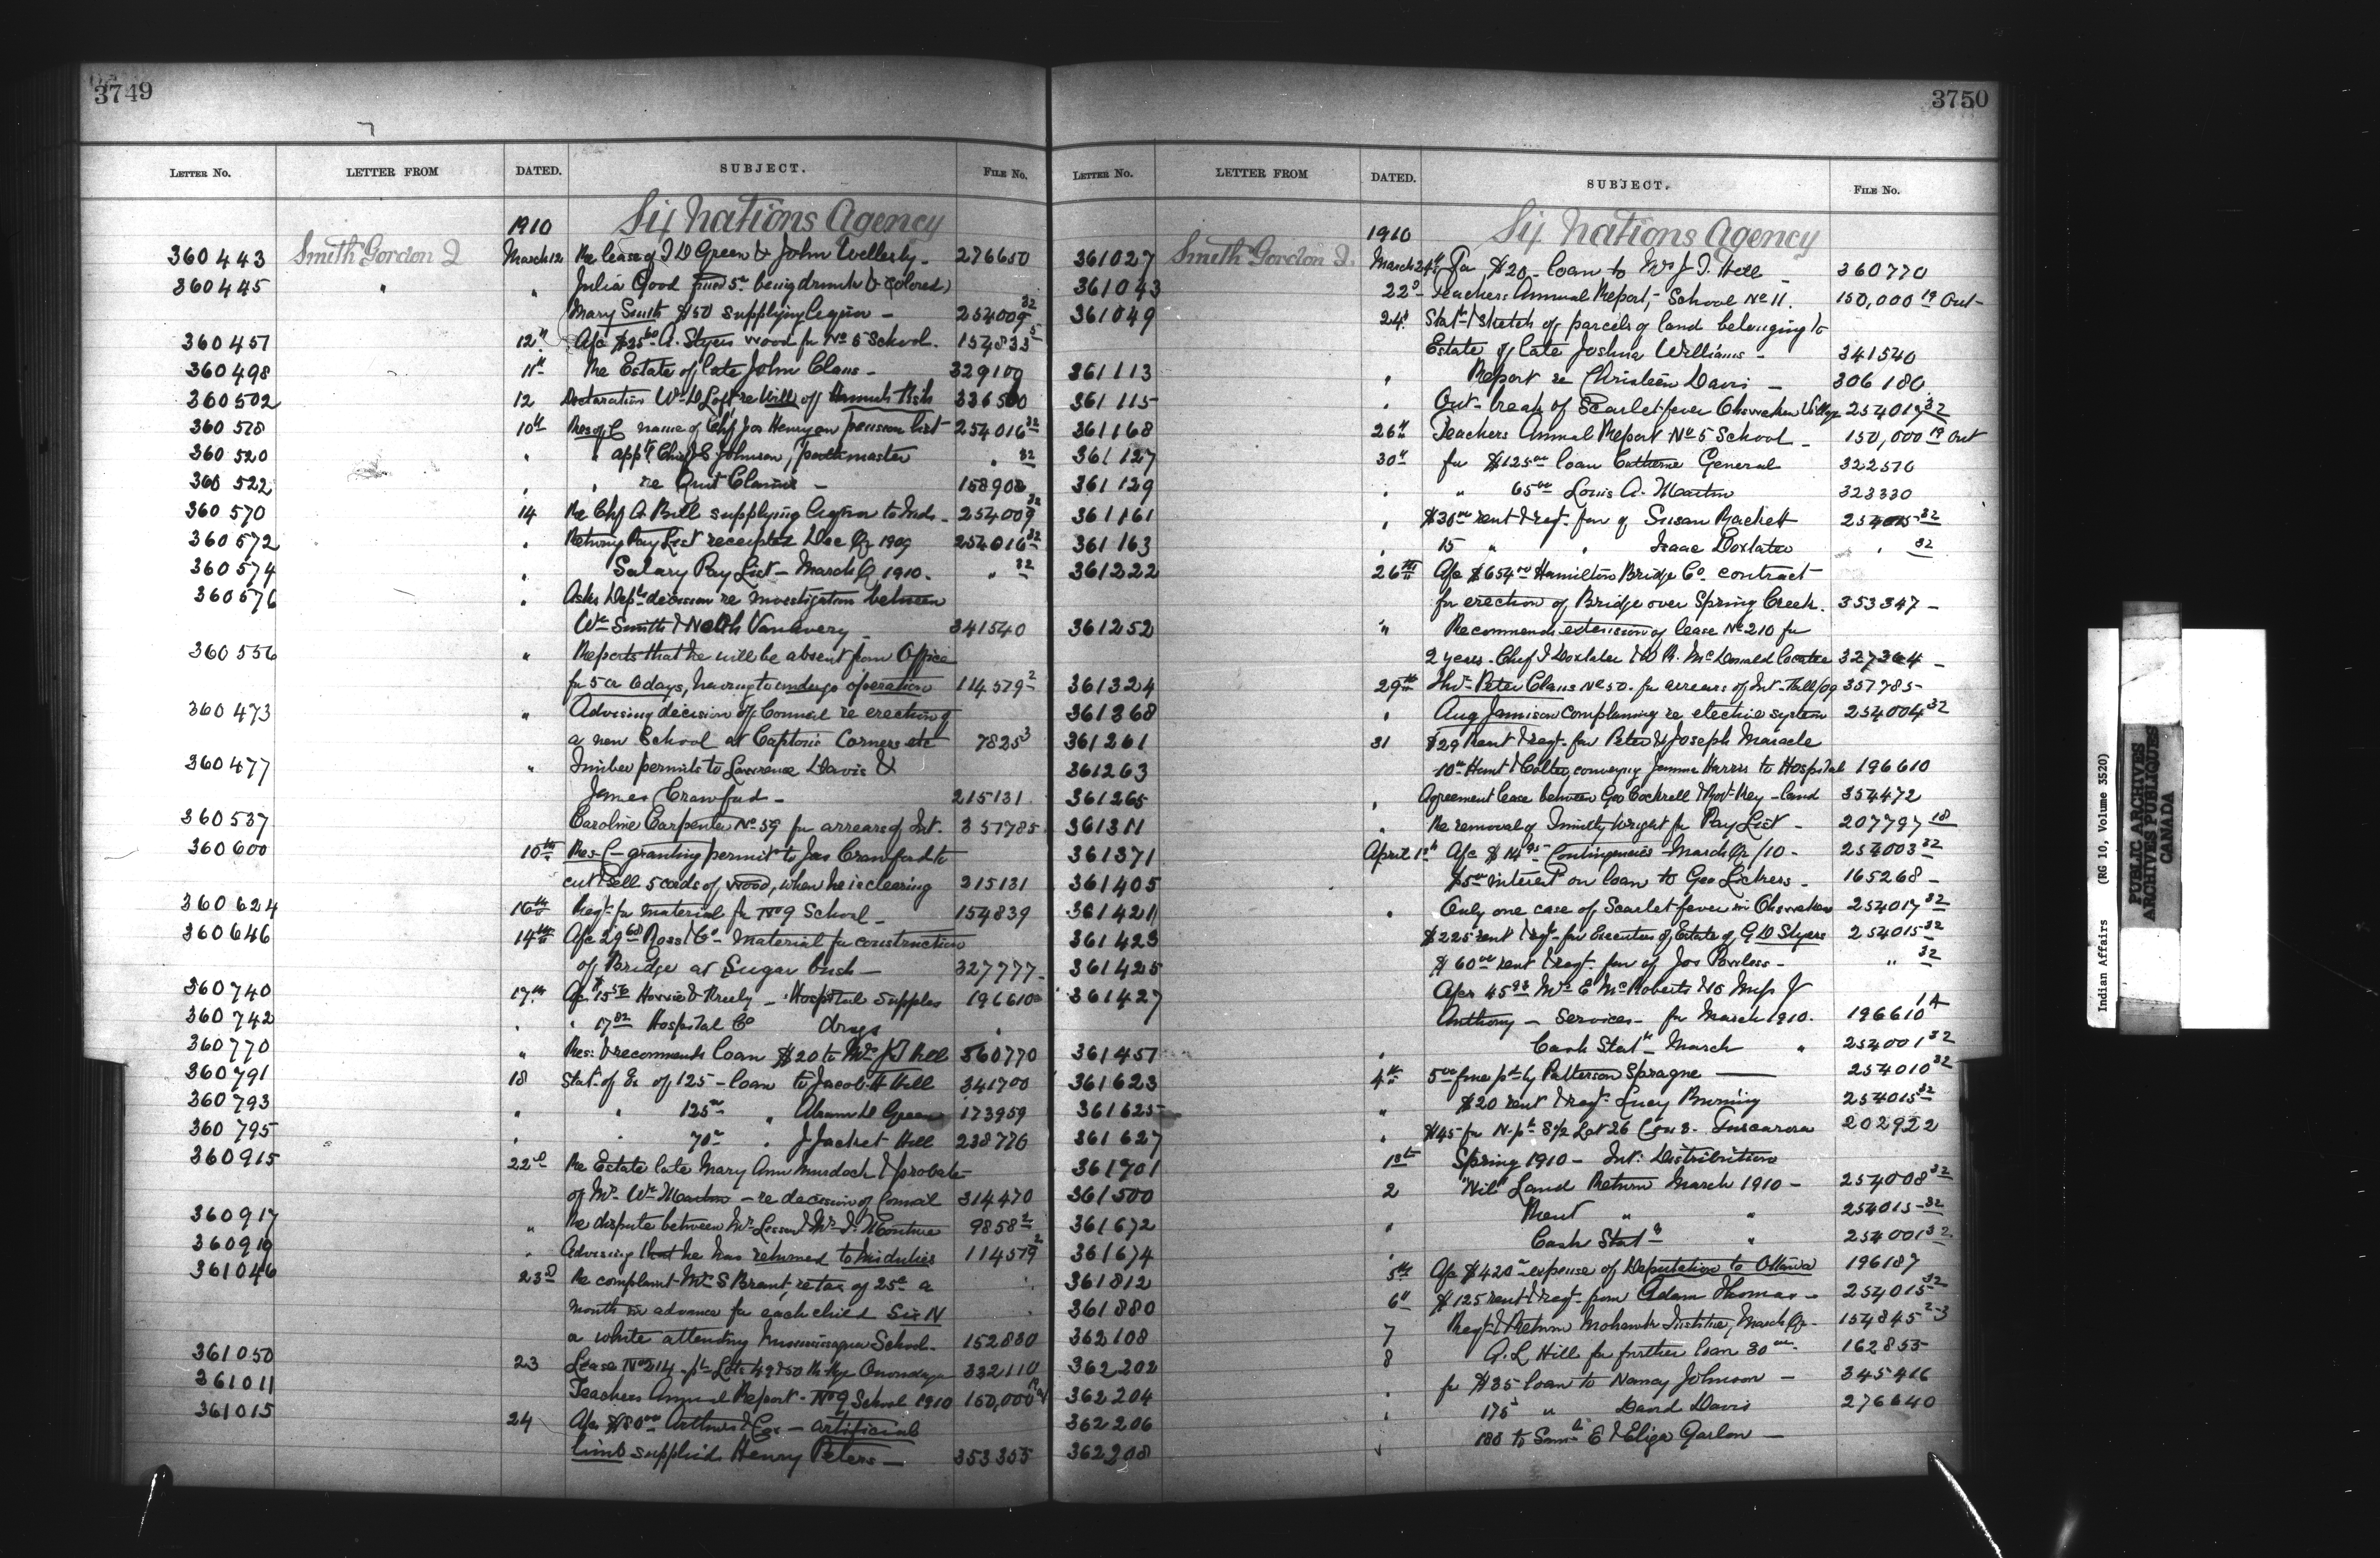 3749
LETTER No. LETTER FROM DATED. SUBJECT. FILE No.
1910 Six Nations Agency
360443 Smith Gordon J March 12 Re lease of J D Green & John 276650
360445 " " Julia Good fined 5 being drunk & (colored)
Mary Smith $50 supplying liquor - 254009 32
360457 12th A/c $35 A. Styers wood for No 5 School. 154833 5
360498 11th Re Estate of late John Claus - 329109
360502 12 Declaration Wm D Loft re Will of Hannah 336500
360518 10th Res of C name of Chf Jos Henry on pension list 254016 32
360520 " " appt Chief J C Johnson, Pathmaster " 32
360522 " " re Quit Claims - 158903
360570 14 Re Chf A. Bill supplying liquor to Inds - 254009 32
360572 " Returns Pay List receipted Dec Qr 1909 254016 32
360574 " Salary Pay List - March Q 1910. " 32
360576 " Asks Depts decision re Investigation between
Wm Smith & Nelth Vanavery - 341540
360556 " Reports that he will be absent from Office
for 5 or 6 days, having to undergo operation 114579 2
360473 " Advising decision of Council re erection of
a new School at Captons Corners etc 7825 3
360477 " Timber permits to Lawrence Davis &
James Crawford - 215131
360537 Caroline Carpenter No 59 for arrears of Int. 357785
360600 10th Res C - granting permit to Jas Crawford to
cut & sell 5 cords of wood, when he is clearing 215131
360624 16th Reqt for material for No 9 School - 154839
360646 14th A/c 29 68 Ross & Co - Material for construction
of Bridge at Sugar bush - 327777 -
360740 17th A/c $15 56 Howie & Feely - Hospital supplies 196610
360742 " " 17 82 Hospital Co drugs "
360770 " Res: & recommends loan $20 to Mrs J T Hill 360770
360791 18 Stat. of of 125 - loan to Jacob H Hill 341700
360793 " " 125 " Abram D Green 173959
360795 " " 70 " J Jacket Hill 238776
360915 22d Re Estate late Mary Ann Murdoch & probate
of Mr Wm Martin - re decision of Council 314470
360917 " Re dispute between Mr & Mr 9858 2
360919 " Advising that he has returned to his duties 114579 2
361046 23d Re complaint Mr S Brant, re tax of 25c a
month in advance for each child Six N
a white attending Mississagua School. 152830
361050 23 Lease No 214 - pt Lots 49 & 50 Onondaga 332110
361011 Teachers Annual Report - No 9 School 1910 150,000 19
361015 24 A/c $80 00 Arthur & Cox - artificial
limb supplied Henry Peters - 353355
3750
LETTER No. LETTER FROM DATED. SUBJECT. FILE No.
1910 Six Nations Agency
361027 Smith Gordon J. March 24th For $20 - loan to Mrs J T. Hill - 360770
361043 22d - Teachers Annual Report, - School No 11. 150,000 19 Ont -
361049 24th Stat & sketch of parcels of land belonging to
Estate of late Joshua Williams - 341540
361113 " Report re Christeen Davis - 306180
361115 " Out-break of Scarlet fever Ohsweken Village 254017 32
361168 26th Teachers Annual Report No 5 School - 150,000 19 Ont
361127 30th for $125 00 loan Catherine General 322570
361129 " " 65 00 Louis A. Martin 323330
361161 " $30 00 rent & reqt. for of Susan Rachett 254015 32
361163 " 15 " " Isaac Doxtater " 32
361222 26th A/c $654 00 Hamilton Bridge Co. contract
for erection of Bridge over Spring Creek. 353347 -
361252 " Recommends extension of lease No 210 for
2 years - Chief J Doxtater & W R. McDonald locatee 327364 -
361324 29th Thos - Peter Claus No 50. for arrears of Int - Fall/09 357785 -
361368 " Aug Jamison complaining re elective system 254004 32
361261 31 $29 Rent & reqt. for Peter & Joseph Maracle
361263 10 00 Hunt & Colter, conveying Jemima Harris to Hospital 196610
361265 " Agreement lease between Geo Cockrell & Robt Key - land 354472
361311 " Re removal of Timothy Wright fr Pay List - 207797 18
361371 April 1st A/c $14 95 Contingencies - March Qr /10 - 254003 32
361405 $5 00 interest on loan to Geo Lickers. - 165268 -
361421 " Only one case of Scarlet fever in Ohsweken 254017 32
361423 $225 rent & reqt - for Executors of Estate of G D Styers 254015 32
361425 $60 00 rent & reqt. for of Jos Powless - " 32
361427 A/cs 45 93 Mrs E McRoberts & 15 Miss J
Anthony - Services - for March 1910. 196610 1A
361457 " Cash Statt - March " 254001 32
361623 4th 5 00 fine pd by Patterson Sprague - 254010 32
361625 " $20 rent & reqt. Lucy Burning 254015 32
361627 " $45 for N. pt S 1/2 Lot 26 Con 3. Tuscarora 202922
361701 1st Spring 1910 - Int: Distribution
361500 2 "Nil" Land Return March 1910 - 254008 32
361672 " Rent " " 254015 - 32
361674 " Cash Statt " 254001 32
361812 5th A/c $420 - expense of Deputation to Ottawa 196187
361880 6th $125 rent & reqt. from Adam Thomas - 254015 32
362108 7 Reqt & Return Mohawk Institute, March Qr - 154845 2-3
362202 8 A. L Hill for further loan 30 00 - 162855
362204 " for $35 loan to Nancy Johnson - 345416
362206 " 175 " David Davis 276640
362208 " 180 to E & Eliza Garlow -
Indian Affairs (RG 10, Volume 3520)
PUBLIC ARCHIVES
ARCHIVES PUBLIQUES
CANADA